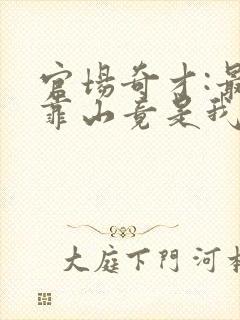 官场奇才:最
靠山竟是我
大庭下門河村